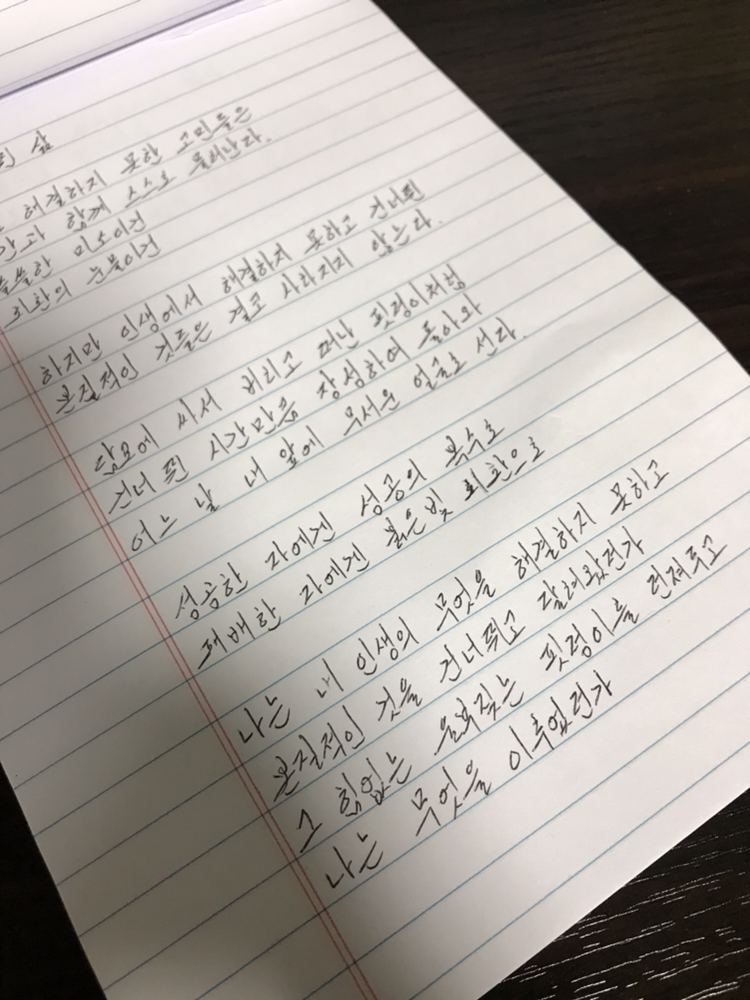 삶
해결하지 못한 고민들은
간과 함께 스스로 물러난다.
쓸쓸한 미소이건
회한의 눈물이건
하지만 인생에서 해결하지 못하고 건너뛴
본질적인 것들은 결코 사라지지 않는다.
담요에 싸서 버리고 떠난 핏덩이처럼
건너 뛴 시간만큼 장성하여 돌아와
어느 날 내 앞에 무서운 얼굴로 선다.
성공한 자에겐 성공의 복수로
패배한 자에겐 붉은빛 회한으로
나는 내 인생의 무엇을 해결하지 못하고
본질적인 것을 건너뛰고 달려왔던가
그 힘없는 울부짖는 핏덩이를 던져두고
나는 무엇을 이루었던가